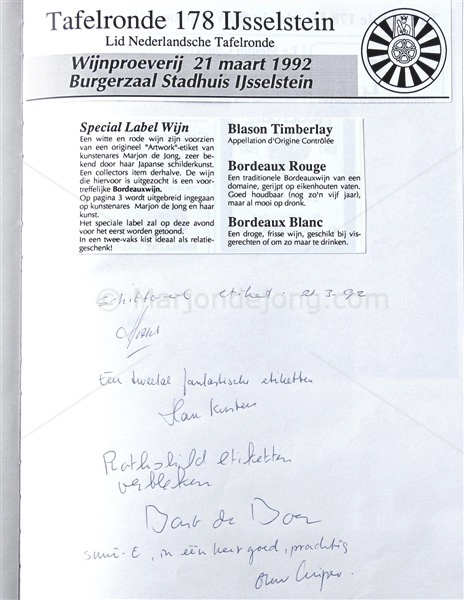 Tafelronde 178 IJsselstein
Lid Nederlandsche Tafelronde
Wijnproeverij 21 maart 1992
Burgerzaal Stadhuis IJsselstein
Special Label Wijn
Een witte en rode wijn zijn voorzien
van een origineel "Artwork"-etiket van
kunstenares Marjon de Jong, zeer be-
kend door haar Japanse schilderkunst.
Een collectors item derhalve. De wijn
die hiervoor is uitgezocht is een voor-
treffelijke Bordeauxwijn.
Op pagina 3 wordt uitgebreid ingegaan
op kunstenares Marjon de Jong en haar
kunst.
Het speciale label zal op deze avond
voor het eerst worden getoond.
In een twee-vaks kist ideaal als relatie-
geschenk!
Blason Timberlay
Appellation d'Origine Contrôlée
Bordeaux Rouge
Een traditionele Bordeauxwijn van een
domaine, gerijpt op eikenhouten vaten.
Goed houdbaar (nog zo'n vijf jaar),
maar al mooi op dronk.
Bordeaux Blanc
Een droge, frisse wijn, geschikt bij vis-
gerechten of om zo maar te drinken.
Schitterend etiket. 21.3.92
© Marjondejong.com
Een tweetal fantastische etiketten
Han
Rothschild etiketten
verbleken
Bart de Boer
in één keer goed, prachtig